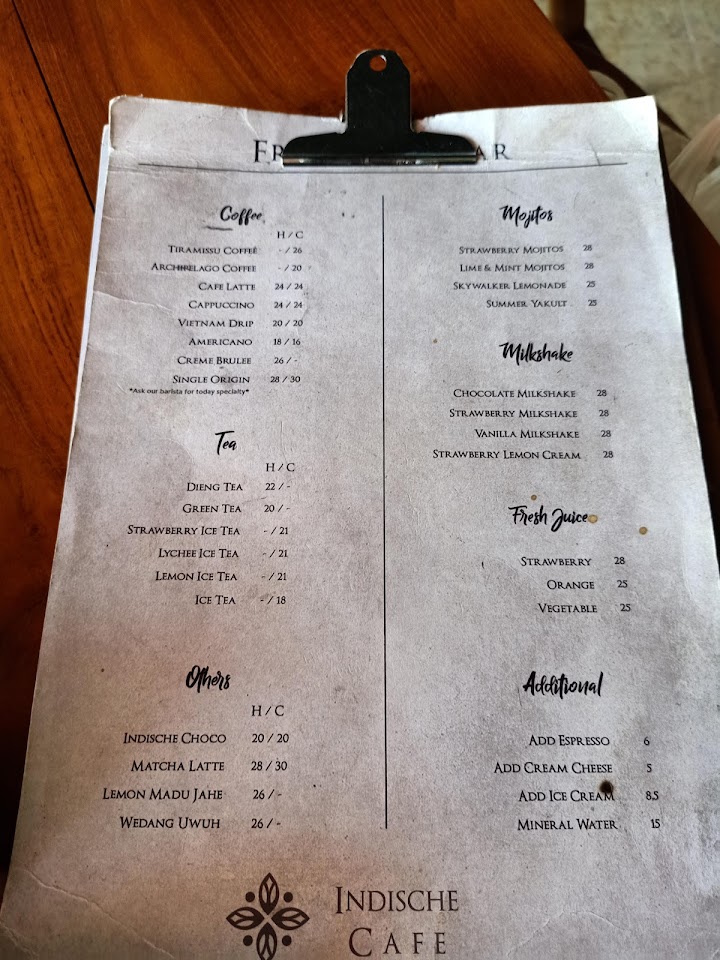 Coffee
H / C
TIRAMISSU COFFEE - / 26
ARCHIPELAGO COFFEE - / 20
CAFE LATTE 24 / 24
CAPPUCCINO 24 / 24
VIETNAM DRIP 20 / 20
AMERICANO 18 / 16
CREME BRULEE 26 / -
SINGLE ORIGIN 28 / 30
*Ask our barista for today specialty*
Tea
H / C
DIENG TEA 22 / -
GREEN TEA 20 / -
STRAWBERRY ICE TEA - / 21
LYCHEE ICE TEA - / 21
LEMON ICE TEA - / 21
ICE TEA - / 18
Others
H / C
INDISCHE CHOCO 20 / 20
MATCHA LATTE 28 / 30
LEMON MADU JAHE 26 / -
WEDANG UWUH 26 / -
Mojitos
STRAWBERRY MOJITOS 28
LIME & MINT MOJITOS 28
SKYWALKER LEMONADE 25
SUMMER YAKULT 25
Milkshake
CHOCOLATE MILKSHAKE 28
STRAWBERRY MILKSHAKE 28
VANILLA MILKSHAKE 28
STRAWBERRY LEMON CREAM 28
Fresh Juice
STRAWBERRY 28
ORANGE 25
VEGETABLE 25
Additional
ADD ESPRESSO 6
ADD CREAM CHEESE 5
ADD ICE CREAM 8.5
MINERAL WATER 15
INDISCHE
CAFE